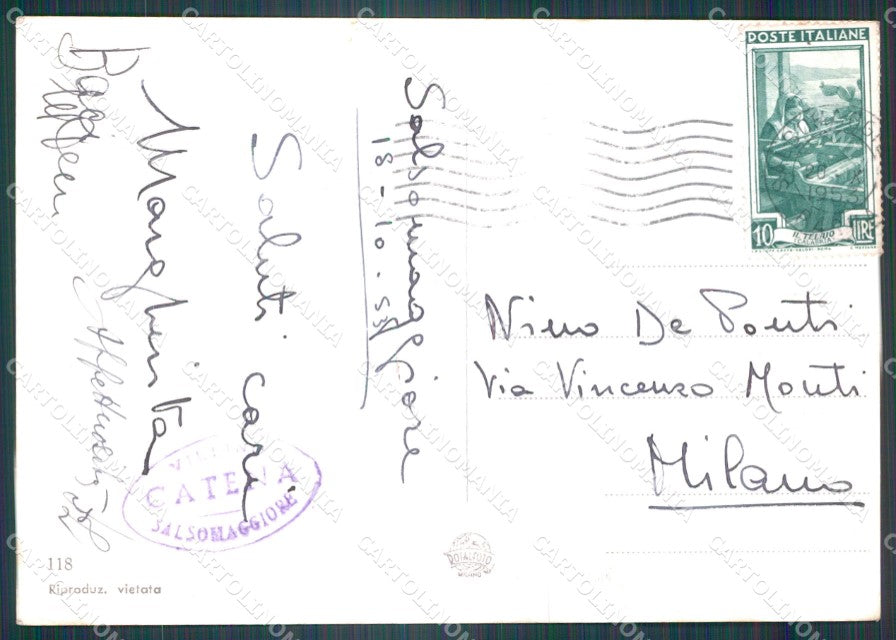 Salsomaggiore
18-10.55
Saluti cari
Margherita
POSTE ITALIANE
10 LIRE
IL TELAIO
CALABRIA
Nino De Ponti
Via Vincenzo Monti
Milano
CATENA
SALSOMAGGIORE
118
Riproduz. vietata
ROTALFOTO
MILANO
CARTOLINOMANIA